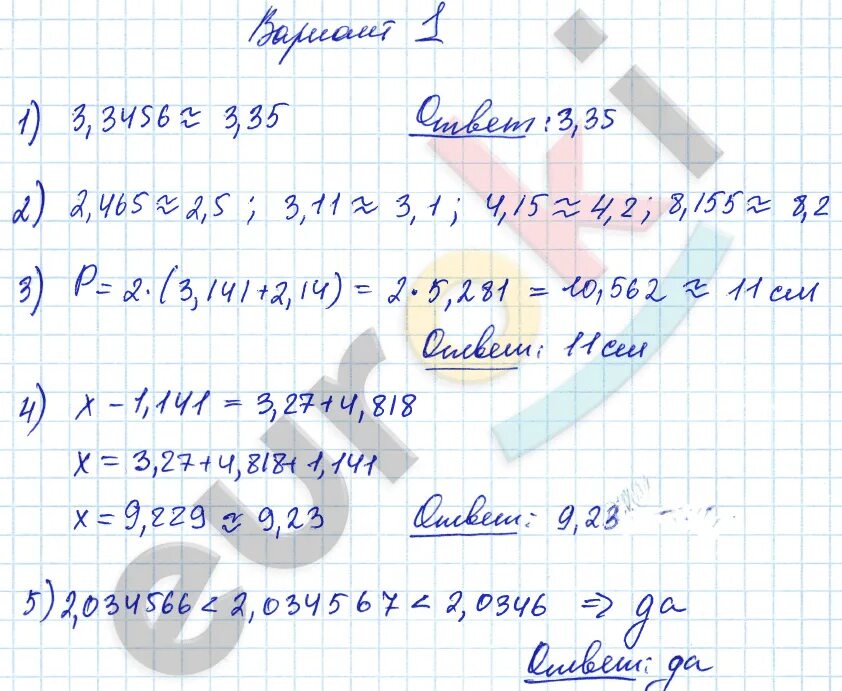 Вариант 1
1) 3,3456 ≈ 3,35 Ответ: 3,35
2) 2,465 ≈ 2,5 ; 3,11 ≈ 3,1 ; 4,15 ≈ 4,2 ; 8,155 ≈ 8,2
3) P = 2·(3,141+2,14) = 2·5,281 = 10,562 ≈ 11 см
Ответ: 11 см
4) x − 1,141 = 3,27+4,818
x = 3,27+4,818+1,141
x = 9,229 ≈ 9,23 Ответ: 9,23
5) 2,034566 < 2,034567 < 2,0346 ⇒ да
Ответ: да
euroki